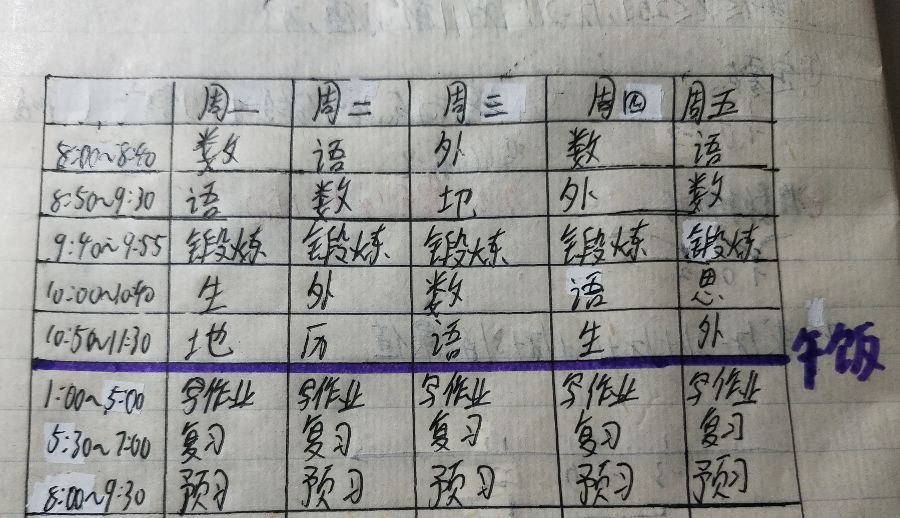 周一 周二 周三 周四 周五
8:00~8:40 数 语 外 数 语
8:50~9:30 语 数 地 外 数
9:40~9:55 锻炼 锻炼 锻炼 锻炼 锻炼
10:00~10:40 生 外 数 语 思
10:50~11:30 地 历 语 生 外
午饭
1:00~5:00 写作业 写作业 写作业 写作业 写作业
5:30~7:00 复习 复习 复习 复习 复习
8:00~9:30 预习 预习 预习 预习 预习